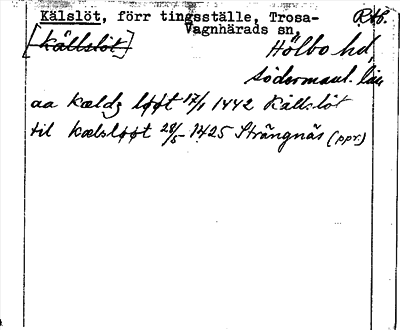 Kälslöt, förr tingsställe, Trosa-
Vagnhärads sn
RAÖ.
[Källslöt]
Hölbo hd,
Södermanl. län
aa kældz løøt 17/1 1442 Källslöt
til kælsløøt 28/5 1425 Strängnäs (ppr.)